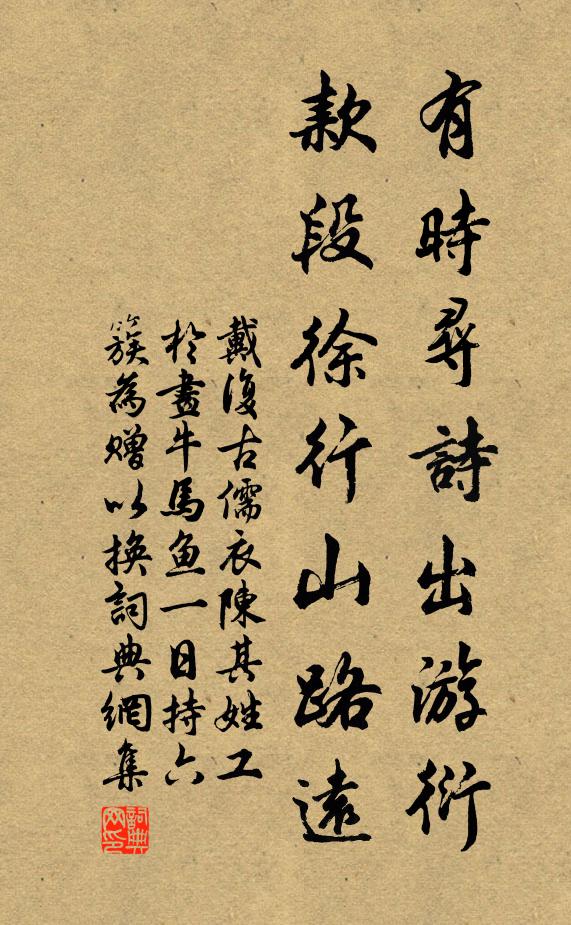 有時尋詩出游衍
款段徐行山路遠
戴復古儒衣陳其姓工
於畫牛馬魚一日持六
簇為贈以換詞典網集
詞典网印